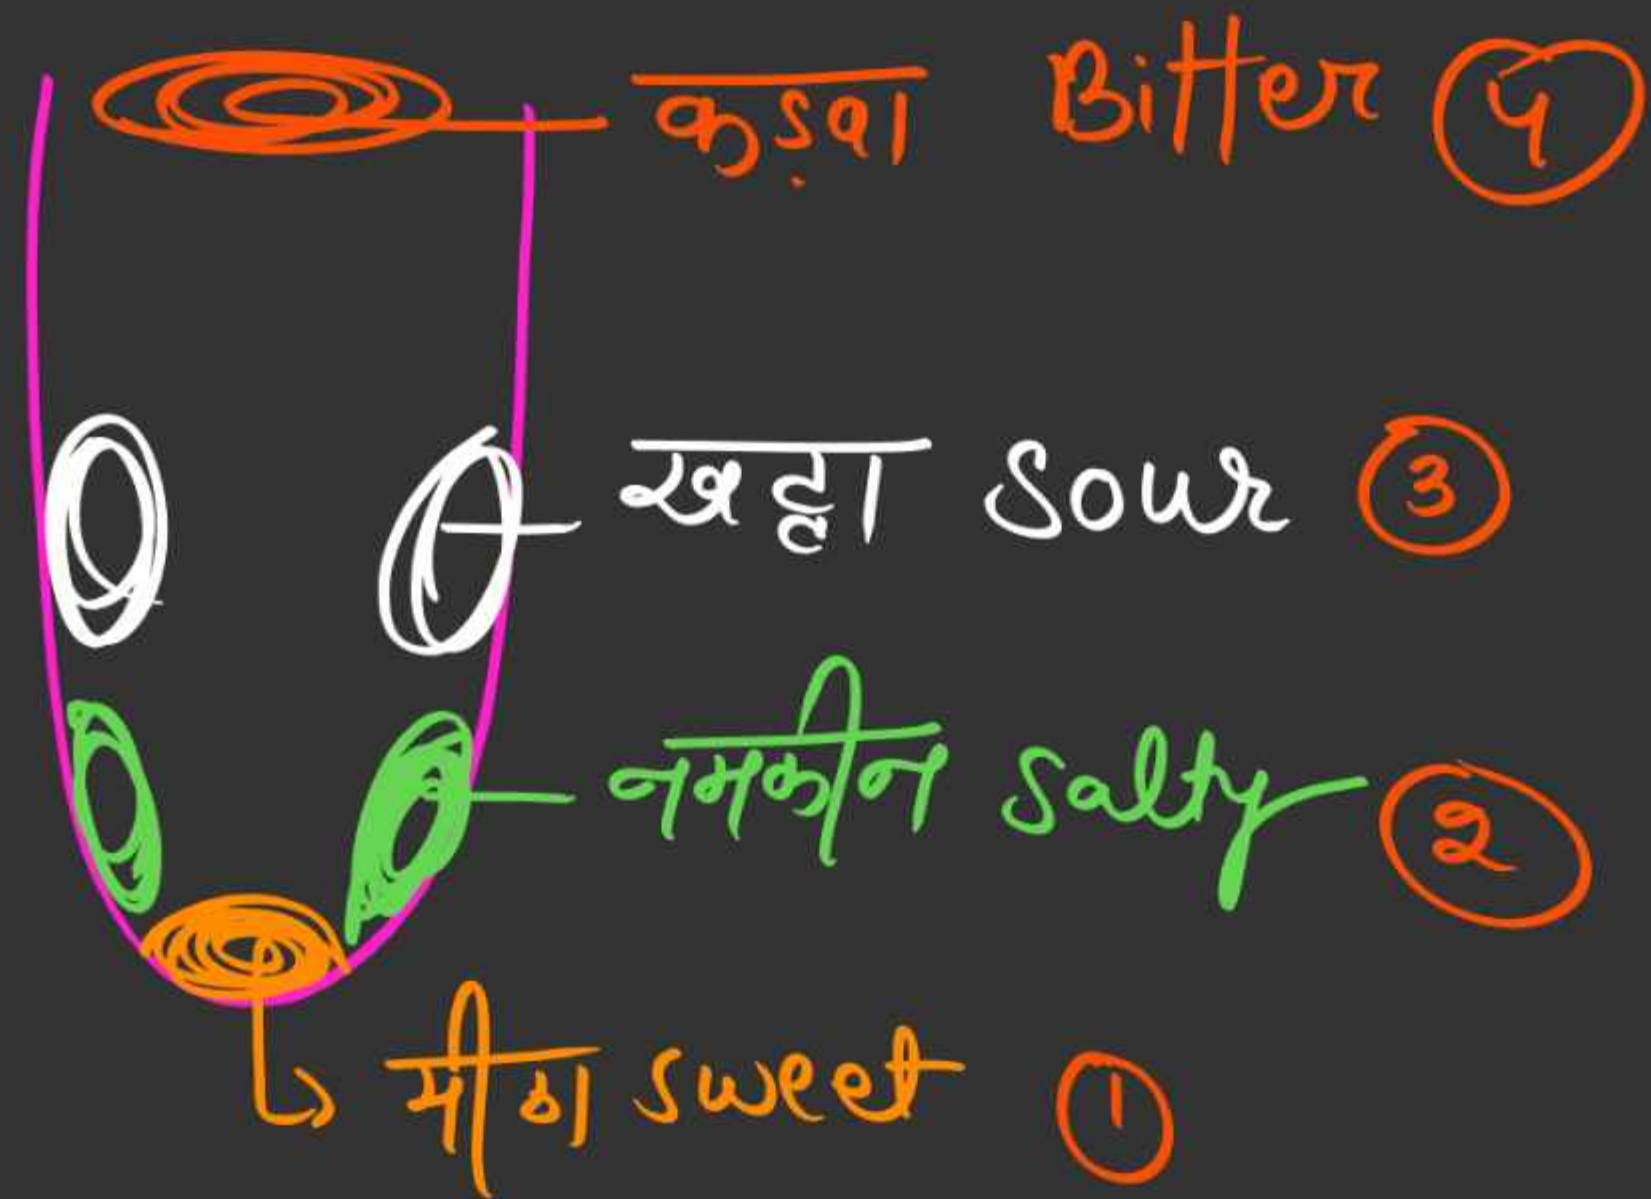 कड़वा Bitter 4
खट्टा Sour 3
नमकीन Salty 2
मीठा sweet 1